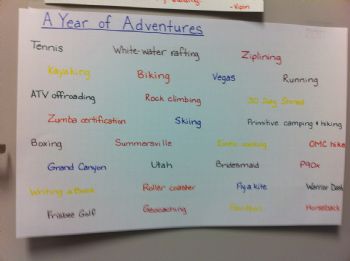 A Year of Adventures
Tennis White-water rafting Ziplining
Kayaking Biking Vegas Running
ATV offroading Rock climbing 30 Day Shred
Zumba certification Skiing Primitive camping & hiking
Boxing Summersville OMC hike
Grand Canyon Utah Bridesmaid P90x
Writing a Book Roller coaster Fly a kite Warrior Dash
Frisbee Golf Geocaching Horseback